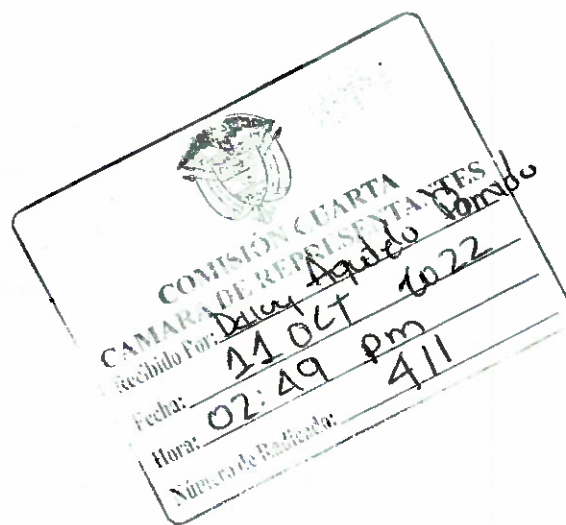 COMISIÓN CUARTA
CAMARA DE REPRESENTANTES
Recibido Por: Deicy Agudelo
Fecha: 11 OCT 2022
Hora: 02:49 pm
Número de Radicado: 411